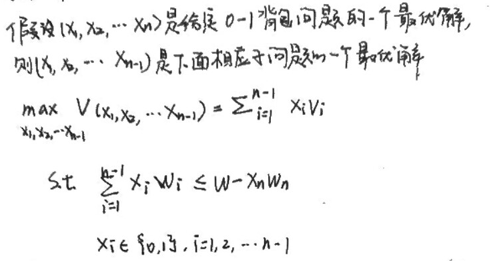 假设(x₁, x₂, … xₙ)是给定 0-1背包问题的一个最优解,
则(x₁, x₂, … xₙ₋₁)是下面相应子问题的一个最优解
max V(x₁, x₂, … xₙ₋₁) = ∑ᵢ₌₁ⁿ⁻¹ xᵢvᵢ
x₁,x₂,…xₙ₋₁
s.t. ∑ᵢ₌₁ⁿ⁻¹ xᵢWᵢ ≤ W - xₙWₙ
xᵢ ∈ {0,1}, i=1,2, … n-1